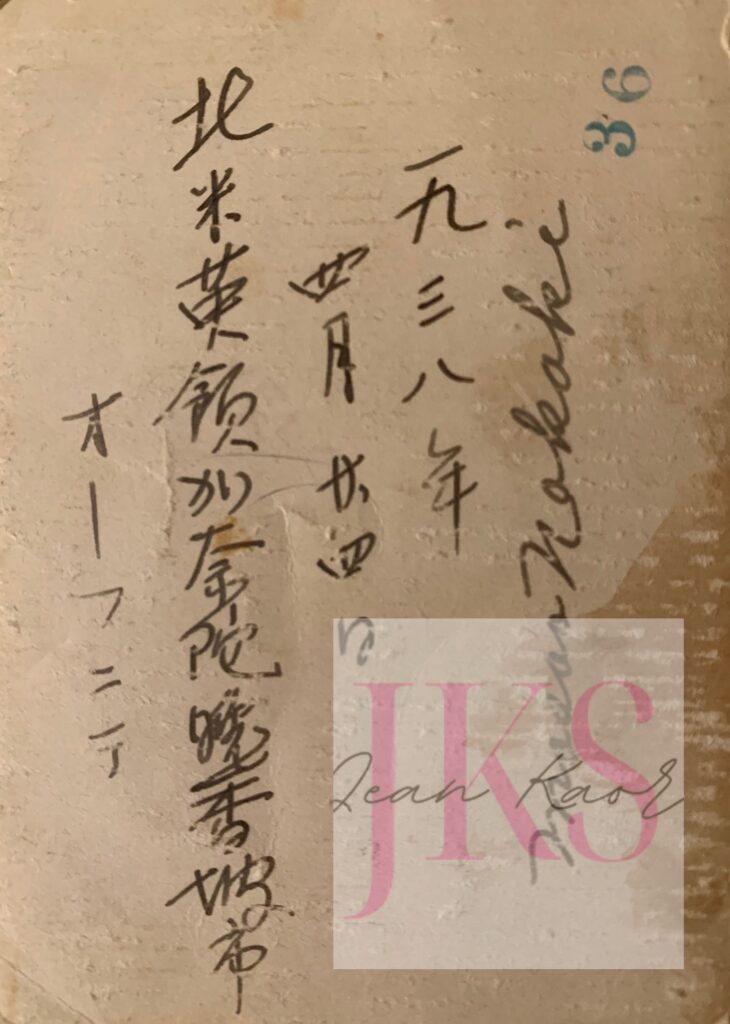 36
一九三八年
四月廿四日
北米英領加奈陀晩香坡市
オーフニテ
JKS
Jean Kaor